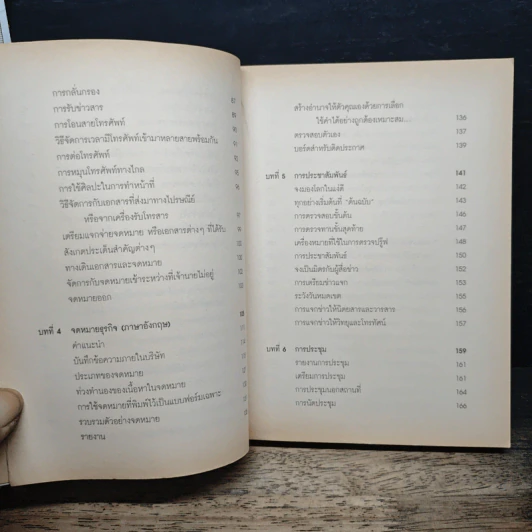 การกลั่นกรอง
การรับข่าวสาร
การโอนสายโทรศัพท์
วิธีจัดการเวลามีโทรศัพท์เข้ามาหลายสายพร้อมกัน
การต่อโทรศัพท์
การหมุนโทรศัพท์ทางไกล
การใช้ศิลปะในการทำหน้าที่
วิธีจัดการกับเอกสารที่ส่งมาทางไปรษณีย์
หรือจากเครื่องรับโทรสาร
เตรียมแจกจ่ายจดหมาย หรือเอกสารต่างๆ ที่ได้รับ
สังเกตประเด็นสำคัญต่างๆ
ทางเดินเอกสารและจดหมาย
จัดการกับจดหมายเข้าระหว่างที่เจ้านายไม่อยู่
จดหมายออก
บทที่ 4 จดหมายธุรกิจ (ภาษาอังกฤษ)
คำแนะนำ
บันทึกข้อความภายในบริษัท
ประเภทของจดหมาย
ท่วงทำนองของเนื้อหาในจดหมาย
การใช้จดหมายที่พิมพ์ไว้เป็นแบบฟอร์มเฉพาะ
รวบรวมตัวอย่างจดหมาย
รายงาน
สร้างอำนาจให้ตัวคุณเองด้วยการเลือก
ใช้คำได้อย่างถูกต้องเหมาะสม... 136
ตรวจสอบตัวเอง 137
บอร์ดสำหรับติดประกาศ 139
บทที่ 5 การประชาสัมพันธ์ 141
จงมองโลกในแง่ดี 142
ทุกอย่างเริ่มต้นที่ "ต้นฉบับ" 143
การตรวจสอบขั้นต้น 146
การตรวจทานขั้นสุดท้าย 147
เครื่องหมายที่ใช้ในการตรวจปรู๊ฟ 148
การประชาสัมพันธ์ 150
จงเป็นมิตรกับผู้สื่อข่าว 152
การเตรียมข่าวแจก 153
ระวังวันหมดเขต 155
การแจกข่าวให้นิตยสารและวารสาร 156
การแจกข่าวให้วิทยุและโทรทัศน์ 157
บทที่ 6 การประชุม 159
รายงานการประชุม 161
เตรียมการประชุม 161
การประชุมนอกสถานที่ 164
การนัดประชุม 166